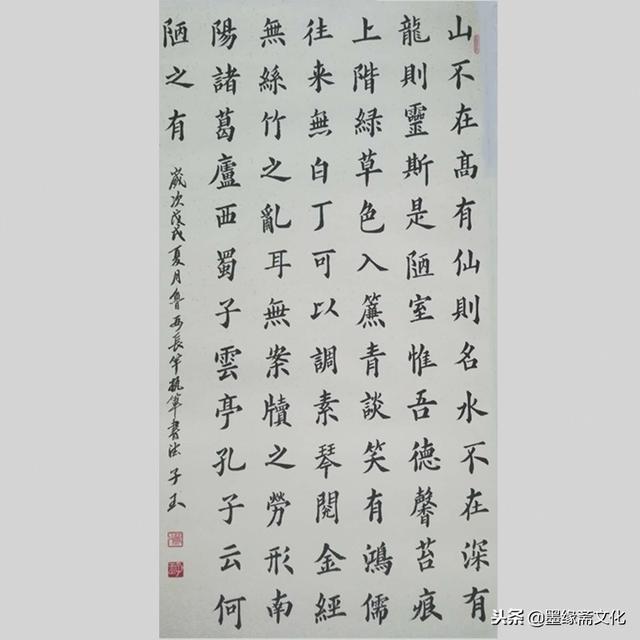 山不在髙有仙則名水不在深有
龍則靈斯是陋室惟吾德馨苔痕
上階綠草色入簾青談笑有鴻儒
往来無白丁可以調素琴閱金經
無絲竹之亂耳無案牘之勞形南
陽諸葛廬西蜀子雲亭孔子云何
陋之有
歲次戊戌夏月魯西長竿執筆書法子玉
头条 @墨缘斋文化